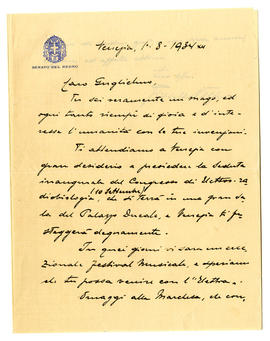 SENATO DEL REGNO
Venezia, 1-8-1934 XII
Caro Guglielmo,
Tu sei veramente un mago, ed
ogni tanto riempi di gioia e d'inte-
resse l'umanità con le tue invenzioni.
Ti attendiamo a Venezia con
gran desiderio a presiedere la Seduta
inaugurale del Congresso di Elettro-ra
(10 Settembre)
diobiologia, che si terrà in una gran Sa
la del Palazzo Ducale, e Venezia ti fe
steggerà degnamente.
In quei giorni vi sarà un ecce
zionale Festival Musicale, e speriamo
che tu possa venire con l'"Elettra".
Omaggi alla Marchesa, che con,